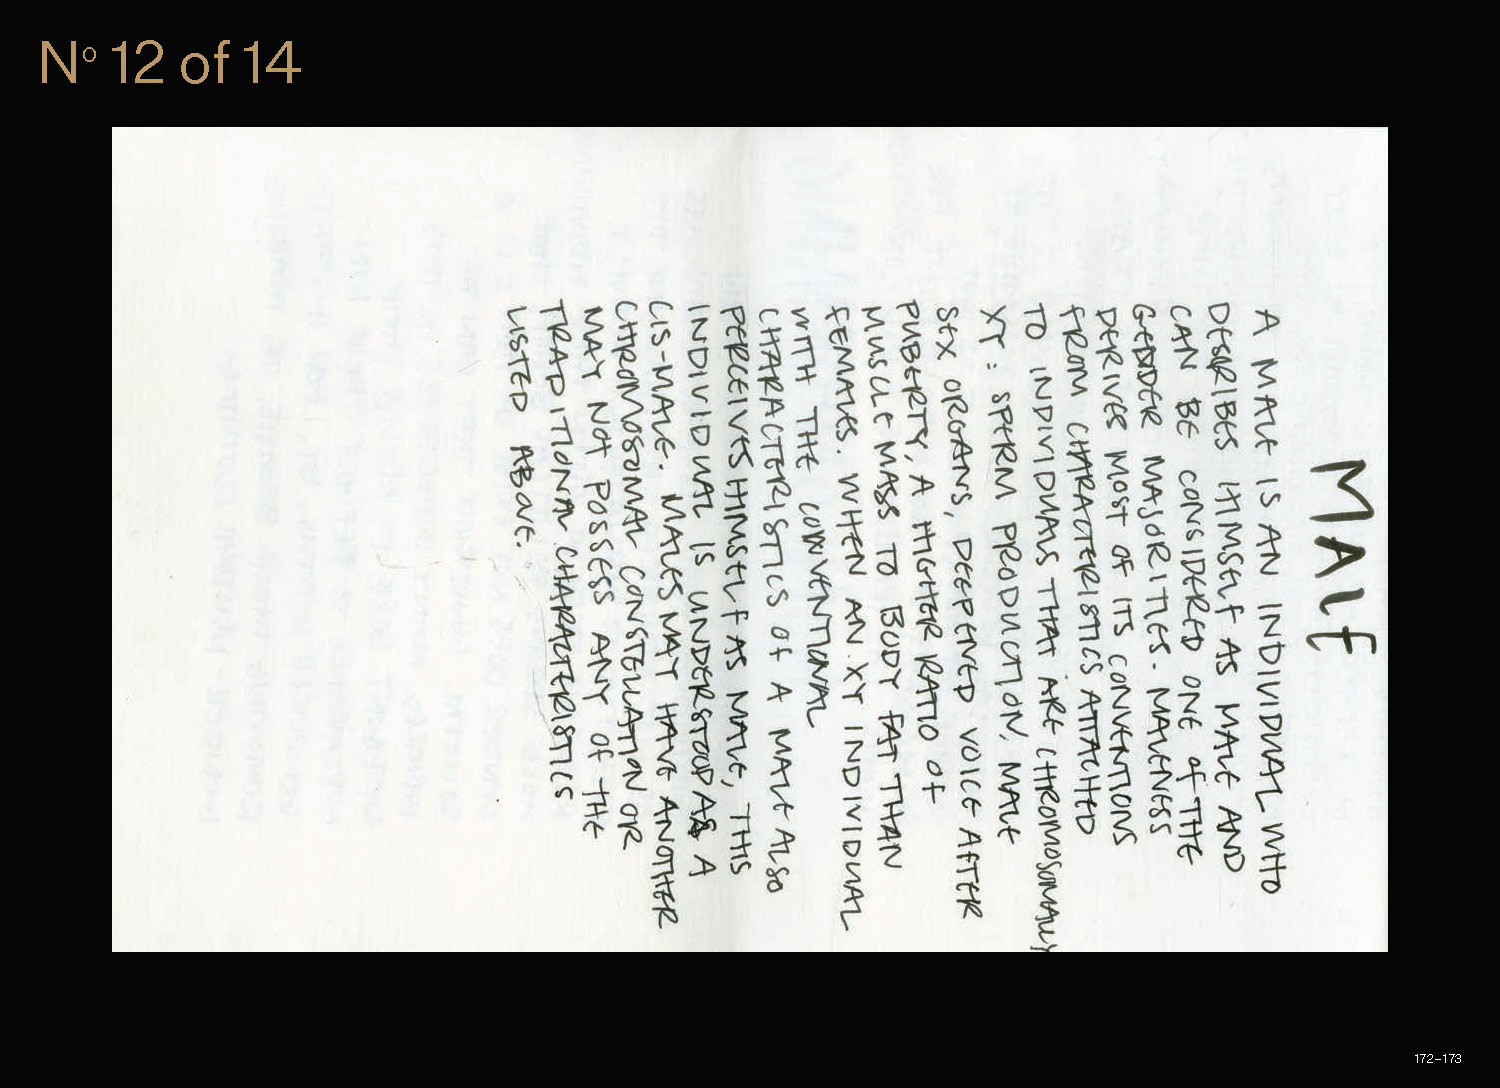 Nº 12 of 14
MALE
A MALE IS AN INDIVIDUAL WHO
DESCRIBES HIMSELF AS MALE AND
CAN BE CONSIDERED ONE OF THE
GENDER MAJORITIES. MALENESS
DERIVES MOST OF ITS CONVENTIONS
FROM CHARACTERISTICS ATTACHED
TO INDIVIDUALS THAT ARE CHROMOSOMALLY
XY: SPERM PRODUCTION, MALE
SEX ORGANS, DEEPENED VOICE AFTER
PUBERTY, A HIGHER RATIO OF
MUSCLE MASS TO BODY FAT THAN
FEMALES. WHEN AN XY INDIVIDUAL
WITH THE CONVENTIONAL
CHARACTERISTICS OF A MALE ALSO
PERCEIVES HIMSELF AS MALE, THIS
INDIVIDUAL IS UNDERSTOOD AS A
CIS-MALE. MALES MAY HAVE ANOTHER
CHROMOSOMAL CONSTELLATION OR
MAY NOT POSSESS ANY OF THE
TRADITIONAL CHARACTERISTICS
LISTED ABOVE.
172–173